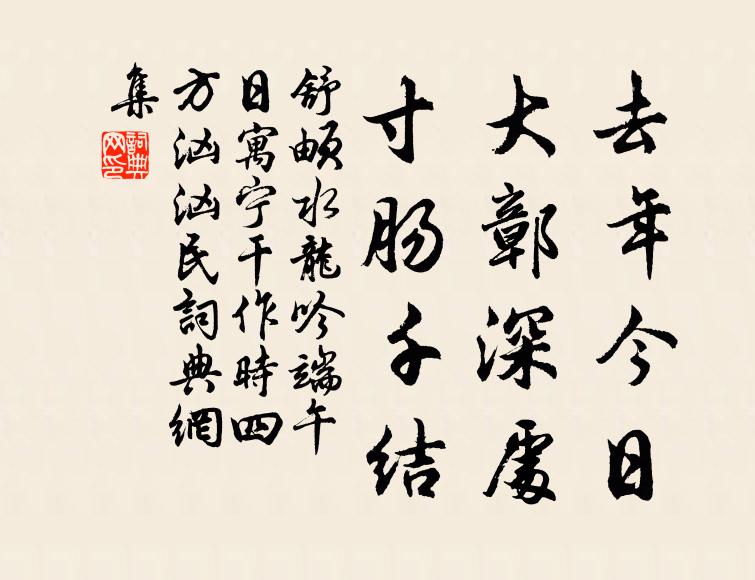 去年今日
大鄣深處
寸肠千结
舒頔水龍吟端午
日寓宁干作時四
方汹汹民詞典網
集
詞典
网印